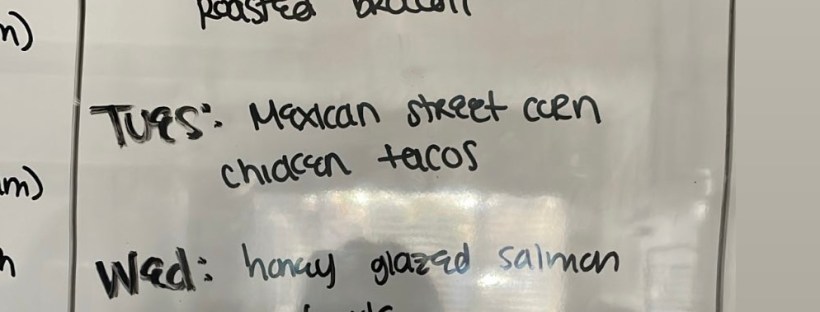 n)
Roasted broccoli
Tues: Mexican street corn
m)
chicken tacos
n
Wed: honey glazed salmon